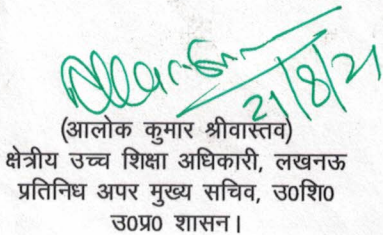 21/8/21
(आलोक कुमार श्रीवास्तव)
क्षेत्रीय उच्च शिक्षा अधिकारी, लखनऊ
प्रतिनिध अपर मुख्य सचिव, उ0शि0
उ0प्र0 शासन।